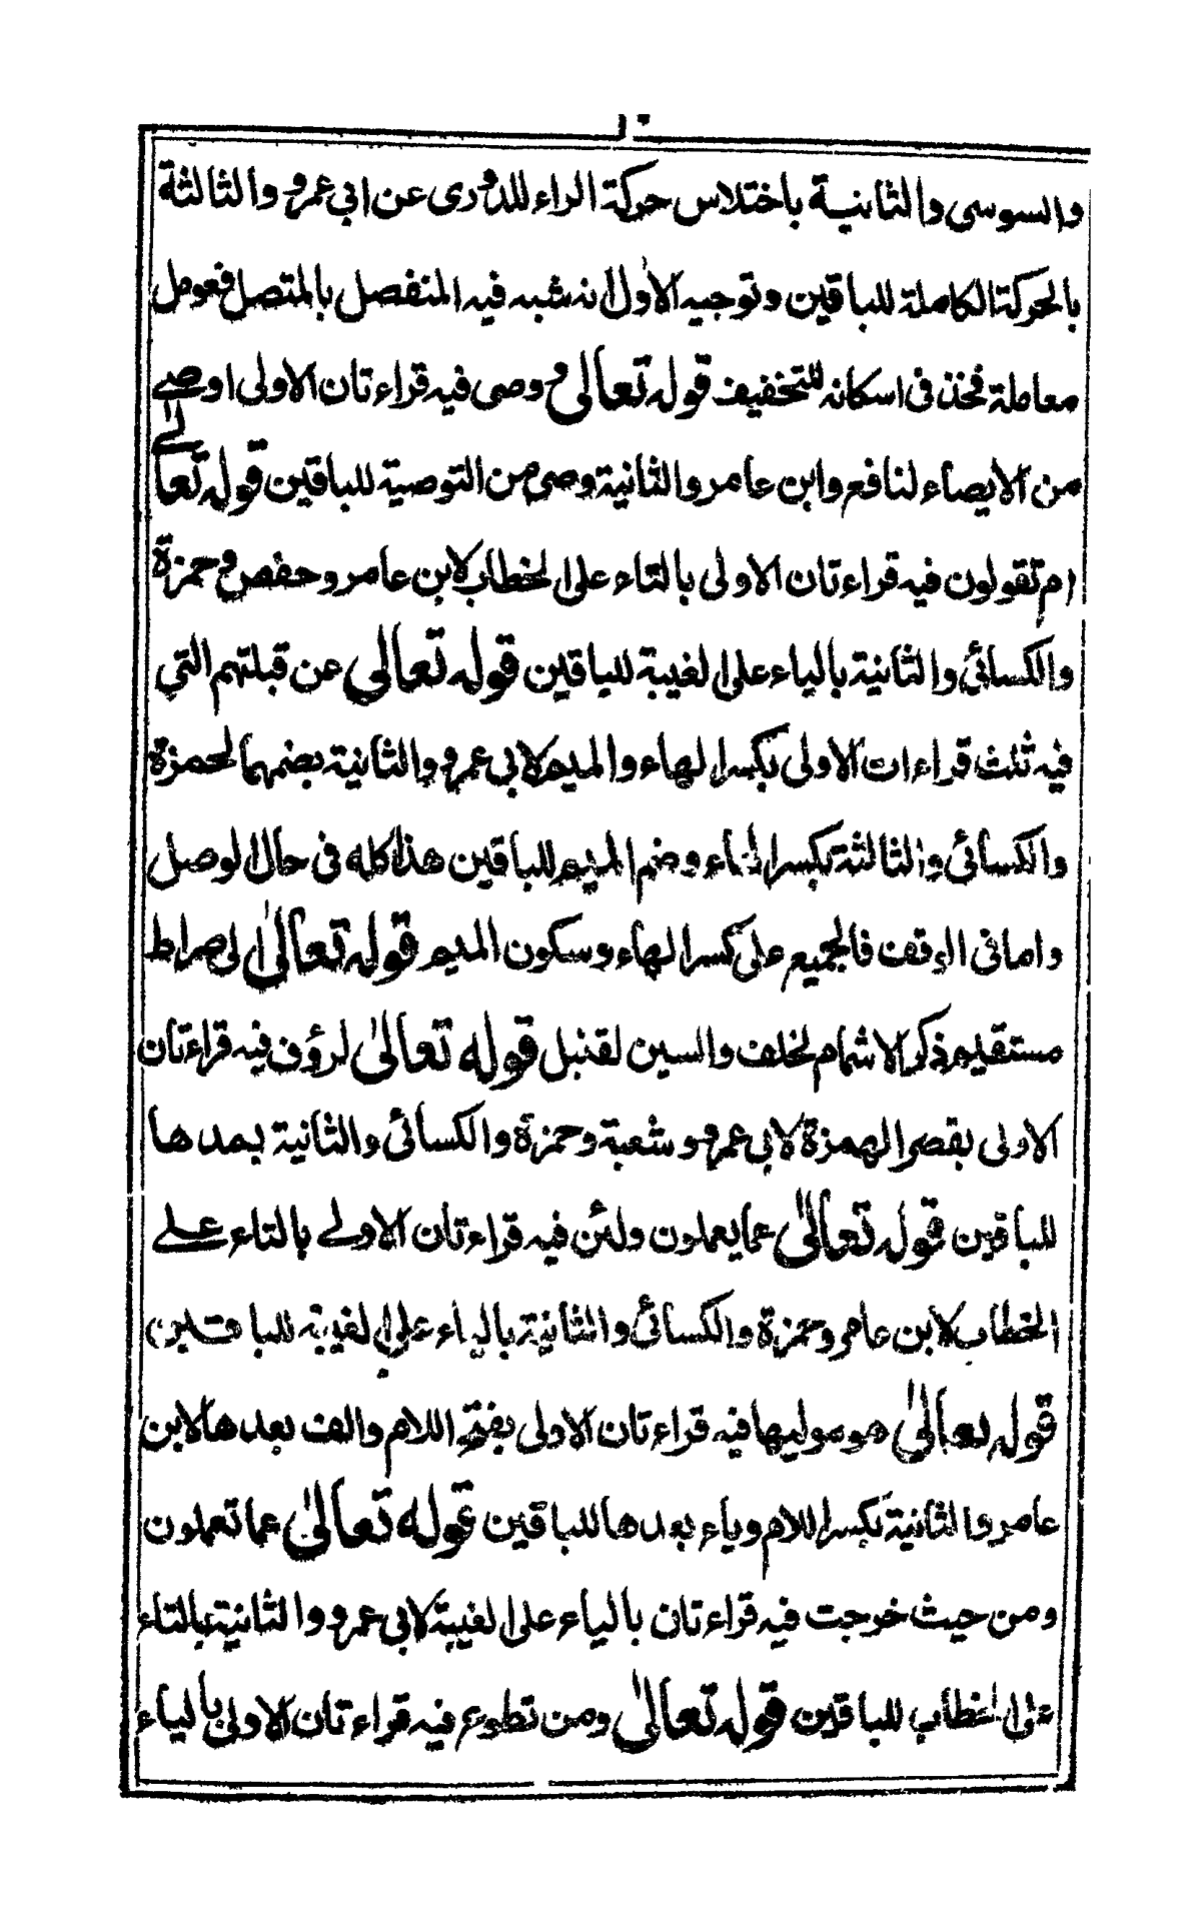 ١٠
والسوسى والثانية باختلاس حركة الراء للدورى عن ابي عمرو والثالثة
بالحركة الكاملة للباقين وتوجيه الاول انه شبه فيه المنفصل بالمتصل فعومل
معاملة فخذ فى اسكانه للتخفيف قوله تعالى ووصى فيه قراءتان الاولى اوصى
من الايصاء لنافع وابن عامر والثانية وصى من التوصية للباقين قوله تعالى
ام تقولون فيه قراءتان الاولى بالتاء على الخطاب لابن عامر وحفص وحمزة
والكسائي والثانية بالياء على الغيبة للباقين قوله تعالى عن قبلتهم التي
فيه ثلث قراءات الاولى بكسر الهاء والميم لابي عمرو والثانية بضمهما لحمزة
والكسائي والثالثة بكسر الهاء وضم الميم للباقين هذا كله فى حال الوصل
واما فى الوقف فالجميع على كسر الهاء وسكون الميم قوله تعالىٰ الى صراط
مستقيم ذكر الاشمام لخلف والسين لقنبل قوله تعالىٰ لرؤف فيه قراءتان
الاولى بقصر الهمزة لابي عمرو وشعبة وحمزة والكسائي والثانية بمدها
للباقين قوله تعالىٰ عما يعملون ولئن فيه قراءتان الاولے بالتاء علے
الخطاب لابن عامر وحمزة والكسائي والثانية بالياء على الغيبة للباقين
قوله تعالىٰ هو موليها فيه قراءتان الاولى بفتح اللام والف بعدها لابن
عامر والثانية بكسر اللام وياء بعدها للباقين قوله تعالىٰ عما تعملون
ومن حيث خرجت فيه قراءتان بالياء على الغيبة لابي عمرو والثانية بالتاء
على الخطاب للباقين قوله تعالىٰ ومن تطوع فيه قراءتان الاولى بالياء